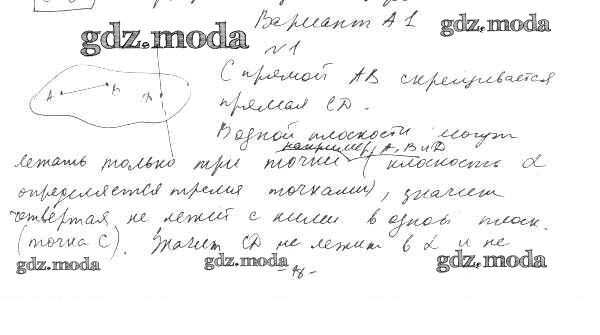 Вариант А1
gdz.moda
gdz.moda
№1
С прямой АВ скрещивается
А В D
прямая CD.
В одной плоскости могут
например, А, В и D
лежать только три точки (плоскость α
определяется тремя точками), значит
четвёртая не лежит с ними в одной плоск.
(точка С). Значит CD не лежит в α и не
gdz.moda
gdz.moda
gdz.moda